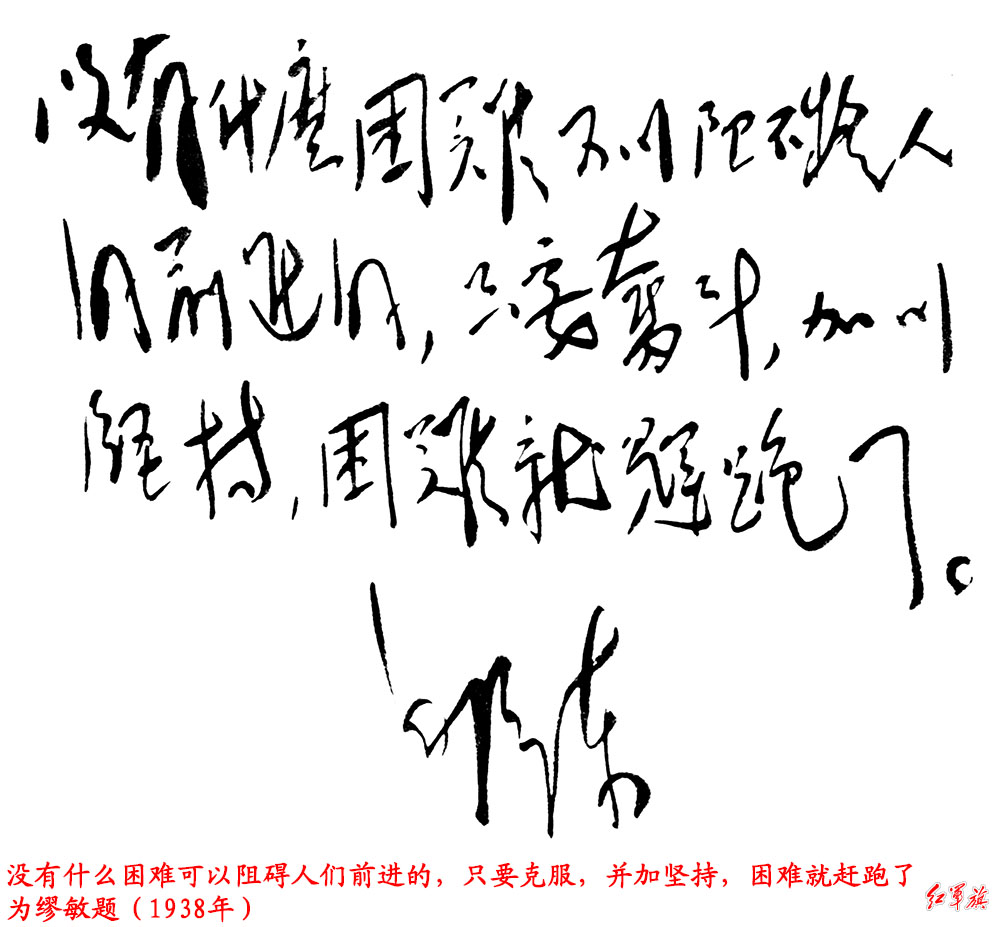 没有什麼困難可以阻礙人
的前進的，只要奮斗，加以
堅持，困難就趕跑了。
毛泽东
没有什么困难可以阻碍人们前进的，只要克服，并加坚持，困难就赶跑了
为缪敏题（1938年）
红军旗